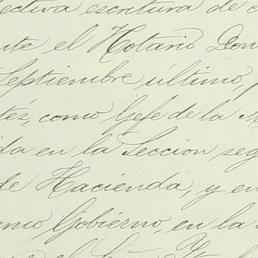 ectiva escritura de c
nte el Notario Don
Septiembre último, p
tés, como Gefe de la
da en la Seccion seg
de Hacienda, y en
smo Gobierno, en la